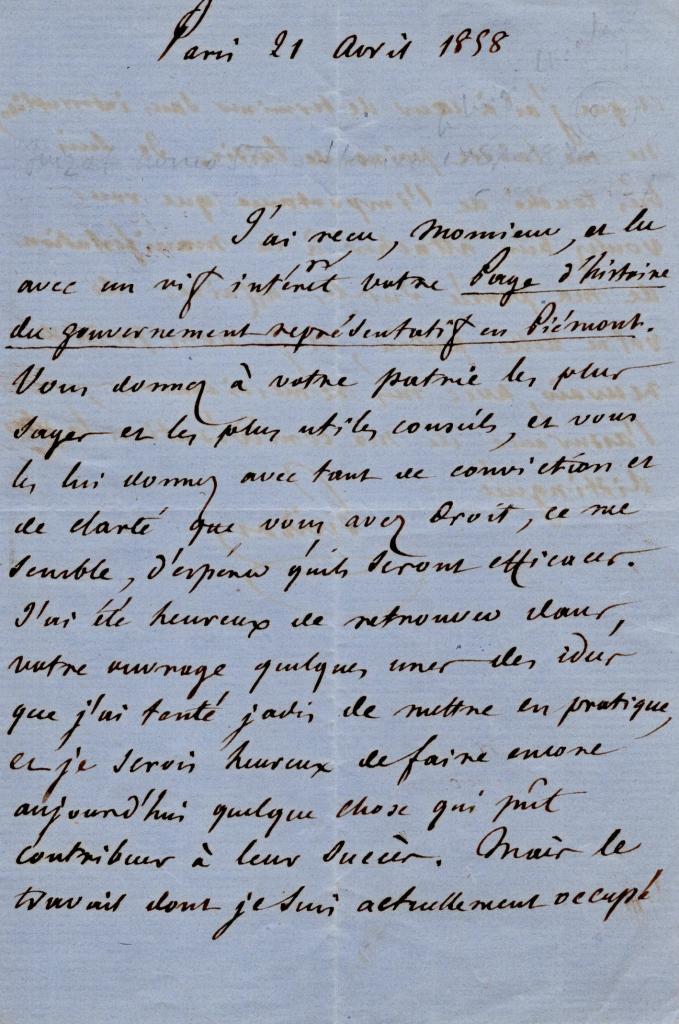 Paris 21 Avril 1858
J'ai reçu, Monsieur, et lu
avec un vif intérêt votre Page d'histoire
du gouvernement représentatif en Piémont.
Vous donnez à votre patrie les plus
sages et les plus utiles conseils, et vous
les lui donnez avec tant de conviction et
de clarté que vous avez droit, ce me
semble, d'espérer qu'ils seront efficaces.
J'ai été heureux de retrouver dans,
votre ouvrage quelques unes des idées
que j'ai tenté jadis de mettre en pratique,
et je serois heureux de faire encore
aujourd'hui quelque chose qui pût
contribuer à leur succès. Mais le
travail dont je suis actuellement occupé